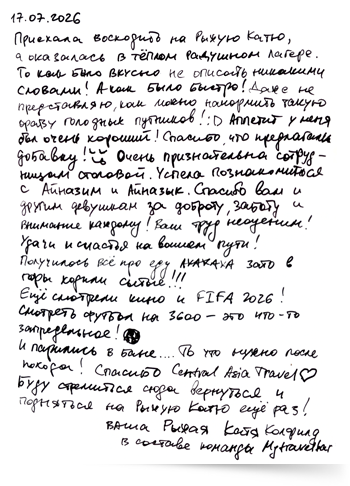 17.07.2026
Приехала восходить на Рыжую Катю,
а оказалась в тёплом радушном лагере.
То как было вкусно не описать никакими
словами! А как было быстро! Даже не
представляю, как можно накормить такую
ораву голодных путников! :D Аппетит у меня
был очень хороший! Спасибо, что предлагали
добавку! Очень признательна сотруд-
ницам столовой. Успела познакомиться
с Айназим и Айназык. Спасибо вам и
другим девушкам за доброту, заботу и
внимание каждому! Ваш труд неоценим!
Удачи и счастья на вашем пути!
Получилось всё про еду АХАХАХА зато в
горы ходили сытые!!!
Ещё смотрели кино и FIFA 2026!
Смотреть футбол на 3600 – это что-то
запредельное!
И парились в бане.... То что нужно после
похода! Спасибо Central Asia Travel ♡
Буду стремиться сюда вернуться и
подняться на Рыжую Катю ещё раз!
Ваша Рыжая Катя
в составе команды Mytravelbar